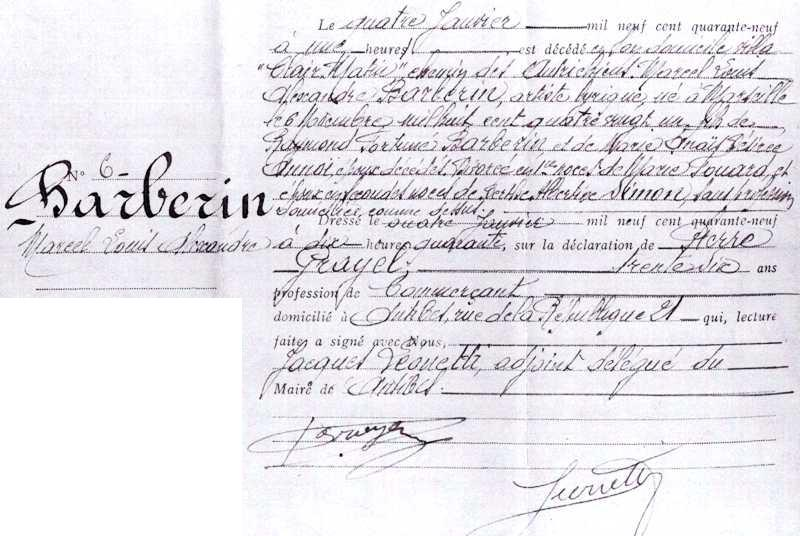 N° 6
Barberin
Marcel Louis Alexandre
Le quatre Janvier mil neuf cent quarante-neuf
à une heures, est décédé en son domicile villa
"Clair Matin", chemin des Autrichiens Marcel Louis
Alexandre BARBERIN, artiste lyrique, né à Marseille
le 6 Novembre mil huit cent quatre vingt un, fils de
Raymond Fortuné Barberin et de Marie Anaïs Désirée
époux décédés. Divorcé en 1res noces de Marie et
époux en secondes noces de Albertine Simon, sans profession
domiciliés comme dessus.
Dressé le quatre Janvier mil neuf cent quarante-neuf
à dix heures quarante, sur la déclaration de Pierre
Grayel, trente six ans
profession de Commerçant
domicilié à Antibes, rue de la République 21 qui, lecture
faite a signé avec Nous,
Jacques Léonetti, adjoint délégué du
Maire de Antibes.